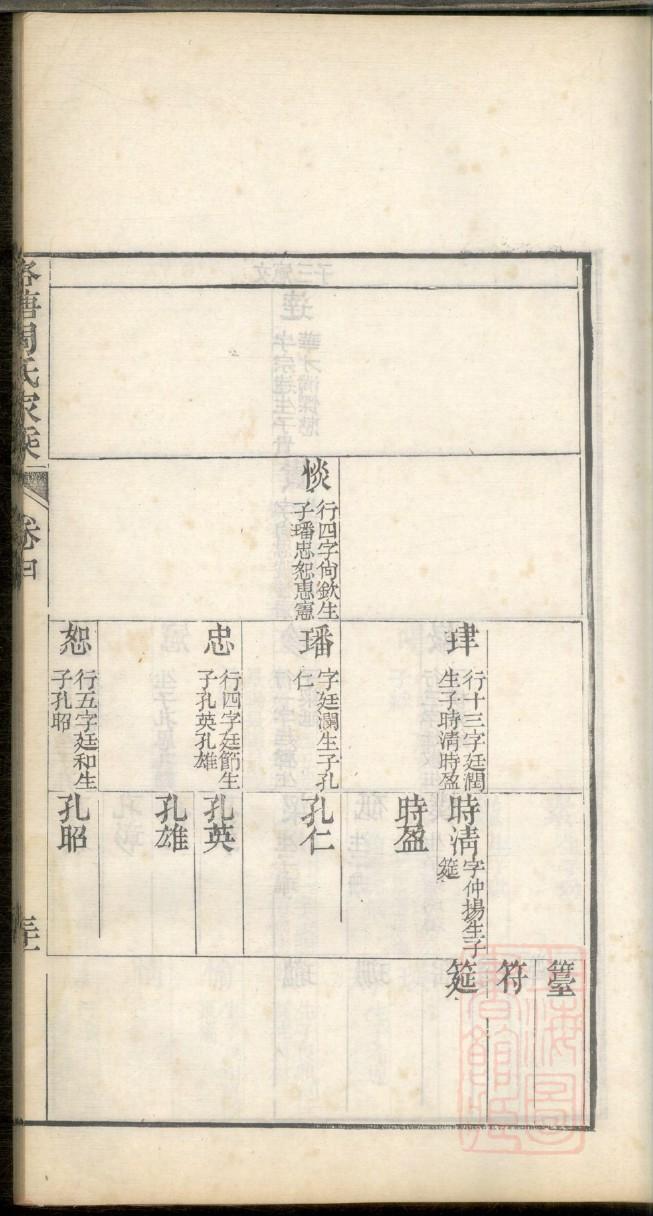 惔
行四字尙欽生
子璠忠恕惠憲
珒
行十三字廷潤
生子時淸時盈
璠
字廷瀾生子孔
仁
忠
行四字廷節生
子孔英孔雄
恕
行五字廷和生
子孔昭
時淸
字仲揚生子
筵
時盈
孔仁
孔英
孔雄
孔昭
符
筵
周氏
卷